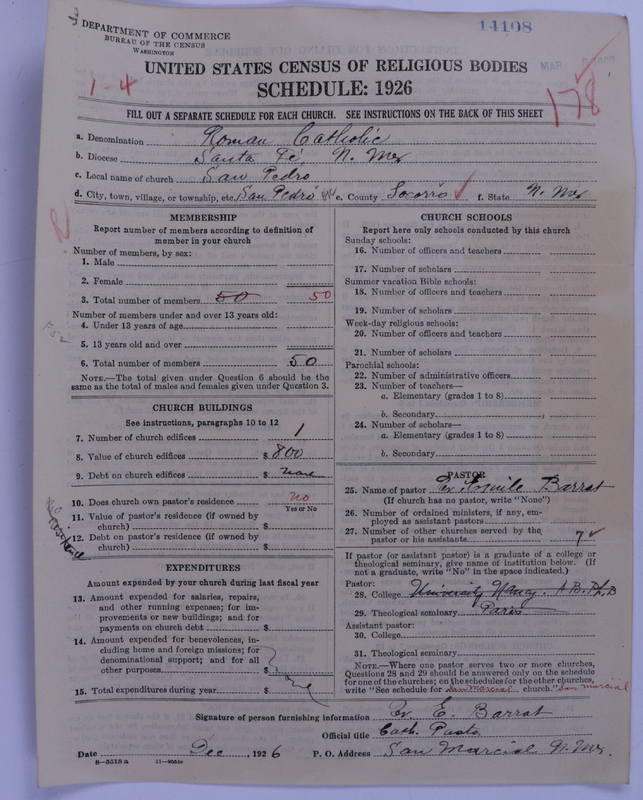 DEPARTMENT OF COMMERCE
BUREAU OF THE CENSUS
WASHINGTON
14198
1-4
178
UNITED STATES CENSUS OF RELIGIOUS BODIES
SCHEDULE: 1926
FILL OUT A SEPARATE SCHEDULE FOR EACH CHURCH. SEE INSTRUCTIONS ON THE BACK OF THIS SHEET
a. Denomination Roman Catholic
b. Diocese Santa Fe, N. Mex
c. Local name of church San Pedro
d. City, town, village, or township, etc. San Pedro e. County Socorro f. State N. Mex
MEMBERSHIP
Report number of members according to definition of
member in your church
Number of members, by sex:
1. Male
2. Female
3. Total number of members 50 50
Number of members under and over 13 years old:
4. Under 13 years of age
5. 13 years old and over
6. Total number of members 50
NOTE.—The total given under Question 6 should be the
same as the total of males and females given under Question 3.
CHURCH BUILDINGS
See instructions, paragraphs 10 to 12
7. Number of church edifices 1
8. Value of church edifices $ 800
9. Debt on church edifices $ none
10. Does church own pastor's residence no
Yes or No
11. Value of pastor's residence (if owned by
church) $
12. Debt on pastor's residence (if owned by
church) $
EXPENDITURES
Amount expended by your church during last fiscal year
13. Amount expended for salaries, repairs,
and other running expenses; for im-
provements or new buildings; and for
payments on church debt $
14. Amount expended for benevolences, in-
cluding home and foreign missions; for
denominational support; and for all
other purposes $
15. Total expenditures during year $
CHURCH SCHOOLS
Report here only schools conducted by this church
Sunday schools:
16. Number of officers and teachers
17. Number of scholars
Summer vacation Bible schools:
18. Number of officers and teachers
19. Number of scholars
Week-day religious schools:
20. Number of officers and teachers
21. Number of scholars
Parochial schools:
22. Number of administrative officers
23. Number of teachers—
a. Elementary (grades 1 to 8)
b. Secondary
24. Number of scholars—
a. Elementary (grades 1 to 8)
b. Secondary
PASTOR
25. Name of pastor Fr Emile Barrat
(If church has no pastor, write "None")
26. Number of ordained ministers, if any, em-
ployed as assistant pastors
27. Number of other churches served by the
pastor or his assistants 7
If pastor (or assistant pastor) is a graduate of a college or
theological seminary, give name of institution below. (If
not a graduate, write "No" in the space indicated.)
Pastor:
28. College University Nancy. A B. Ph. B
29. Theological seminary Paris
Assistant pastor:
30. College
31. Theological seminary
NOTE.—Where one pastor serves two or more churches,
Questions 28 and 29 should be answered only on the schedule
for one of the churches; on the schedules for the other churches,
write "See schedule for San Marcial church." San marcial
Signature of person furnishing information Fr E. Barrat
Official title Cath. Pastor
Date Dec, 1926 P. O. Address San Marcial N. Mex.
8—5518 a